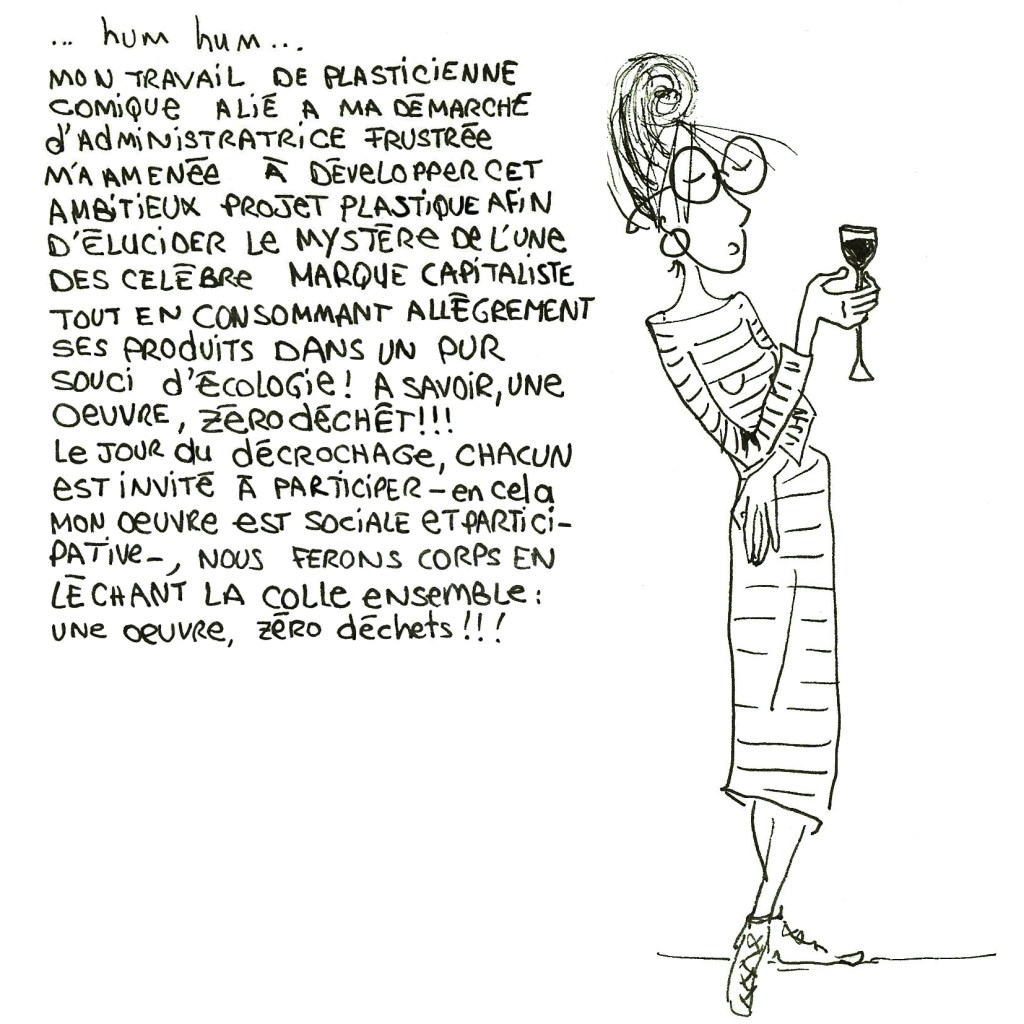 ... hum hum...
MON TRAVAIL DE PLASTICIENNE
COMIQUE ALIÉ A MA DÉMARCHE
d'ADMINISTRATRICE FRUSTRÉE
M'A AMENÉE À DÉVELOPPER CET
AMBITIEUX PROJET PLASTIQUE AFIN
D'ÉLUCIDER LE MYSTÈRE DE L'UNE
DES CELÈBRE MARQUE CAPITALISTE
TOUT EN CONSOMMANT ALLÈGREMENT
SES PRODUITS DANS UN PUR
SOUCI d'ÉCOLOGIE! A SAVOIR, UNE
OEUVRE, ZÉRO DÉCHÊT!!!
LE JOUR du DÉCROCHAGE, CHACUN
EST INVITÉ À PARTICIPER - en cela
MON OEUVRE EST SOCIALE ET PARTICI-
PATIVE -, NOUS FERONS CORPS EN
LÉCHANT LA COLLE ENSEMBLE :
UNE OEUVRE, ZÉRO déchets!!!